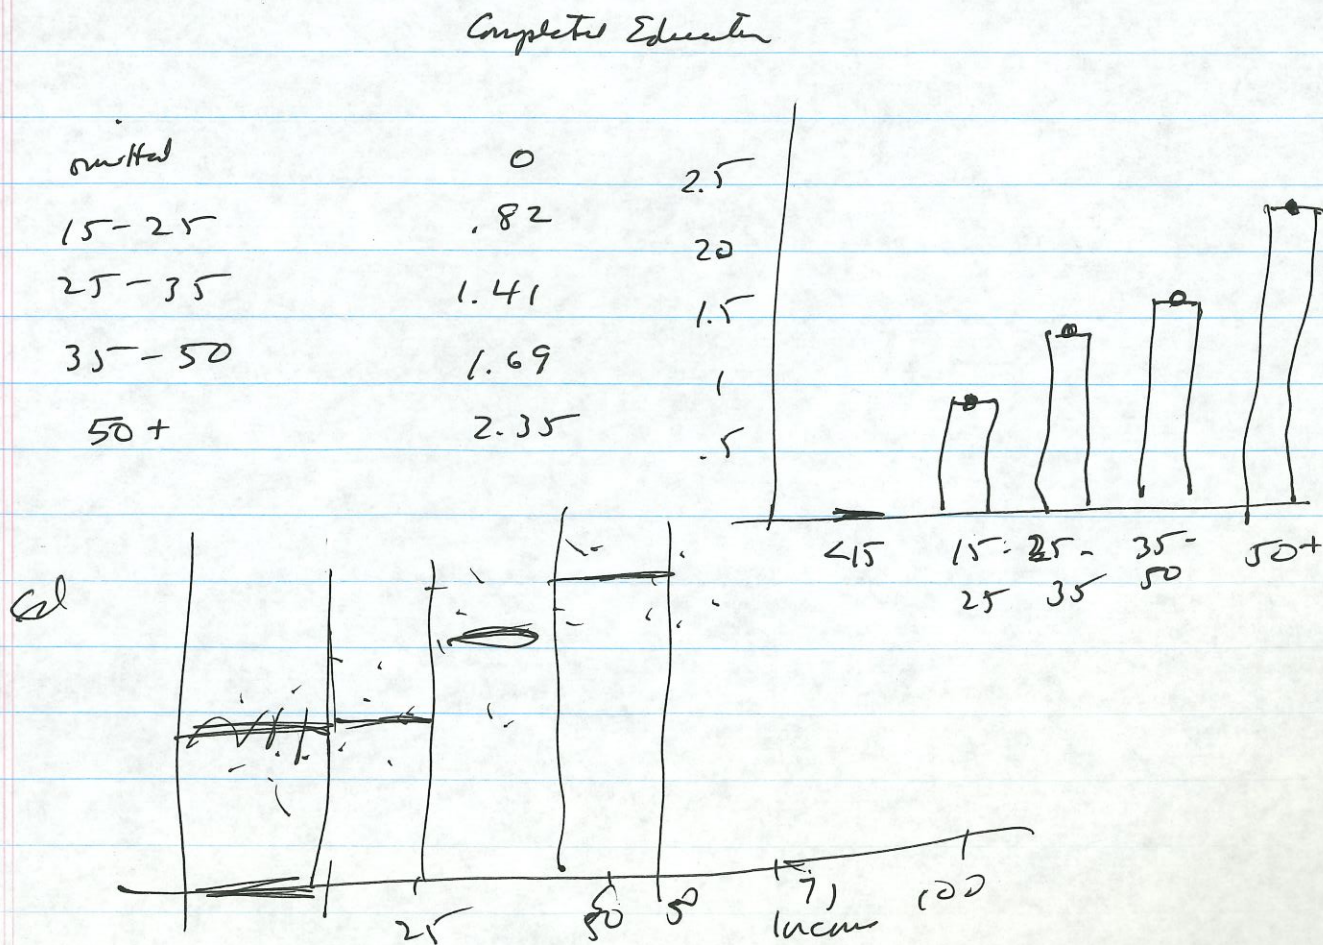 Completed Education
omitted 0
15-25 .82
25-35 1.41
35-50 1.69
50+ 2.35
2.5
20
1.5
1
.5
<15 15-25 25-35 35-50 50+
Ed
25 50 50 100
Income